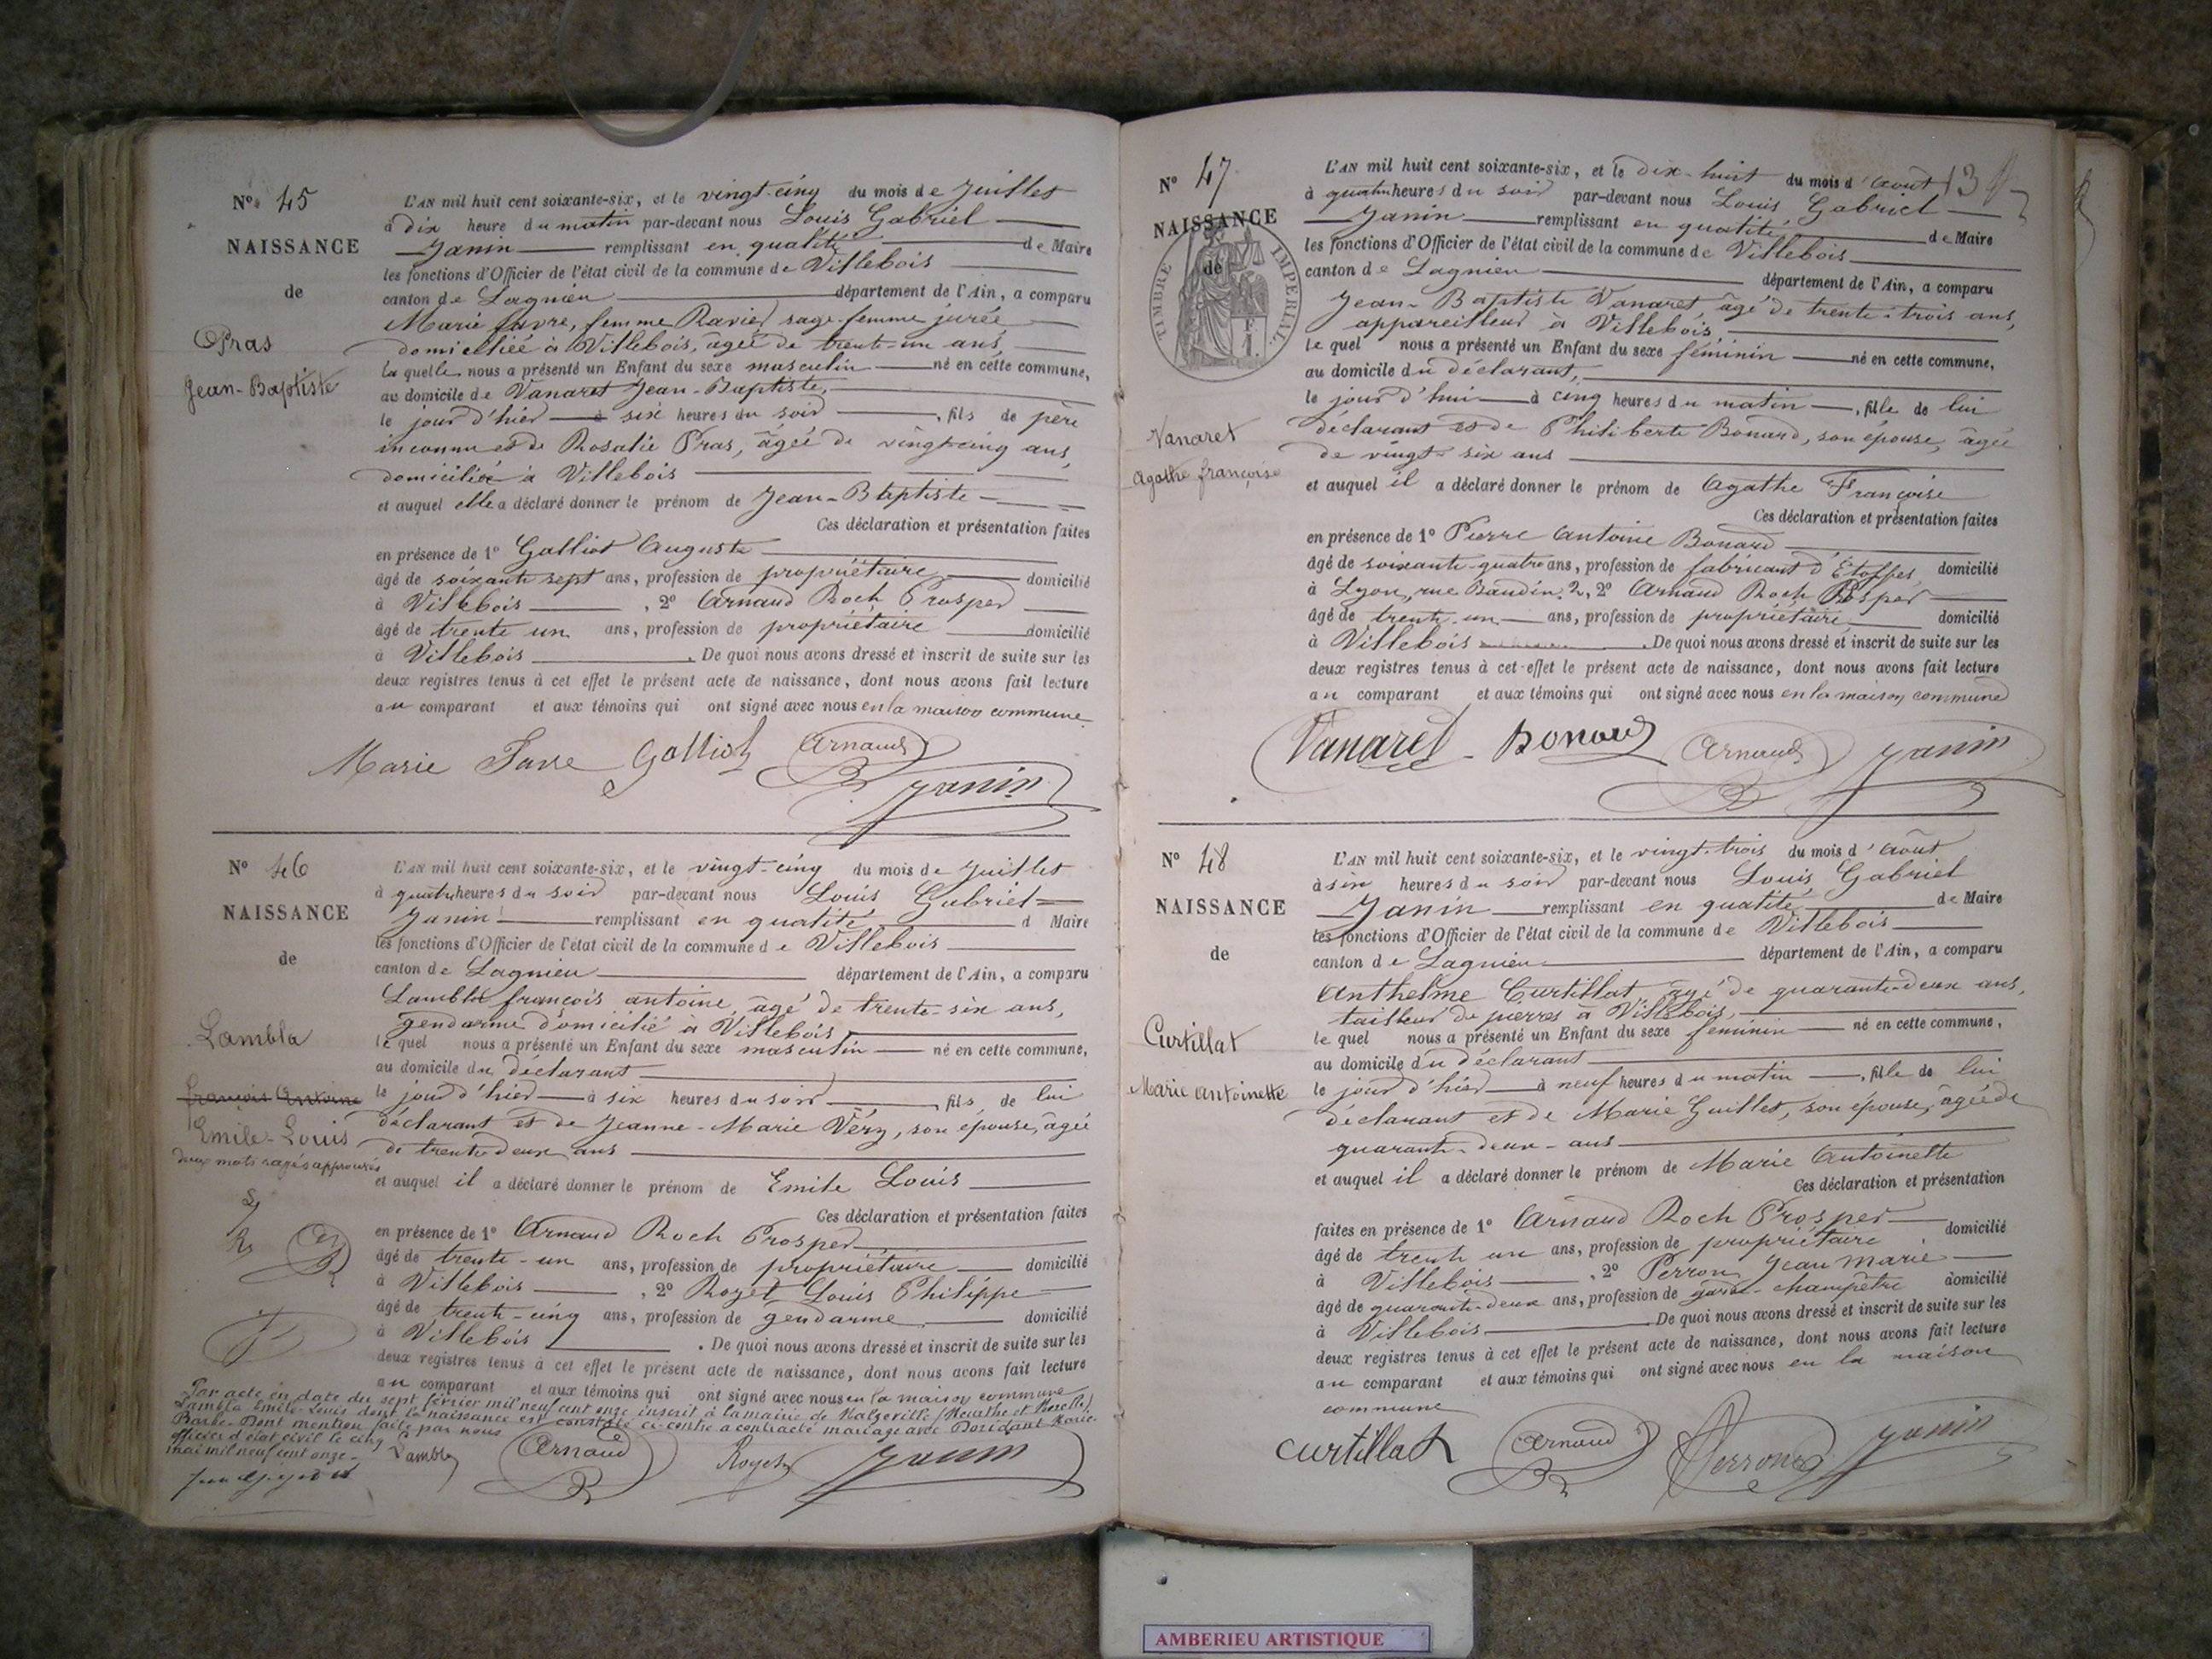 N° 45
NAISSANCE
de
Pras
Jean-Baptiste
L'AN mil huit cent soixante-six, et le vingt-cinq du mois de Juillet
à dix heure du matin par-devant nous Louis Gabriel
Janin remplissant en qualité de Maire
les fonctions d'Officier de l'état civil de la commune de Villebois
canton de Lagnieu département de l'Ain, a comparu
Marie Favre, femme Ravier sage-femme jurée
domiciliée à Villebois, agée de trente-un ans,
la quelle nous a présenté un Enfant du sexe masculin né en cette commune,
au domicile de Vanaret Jean-Baptiste,
le jour d'hier à six heures du soir, fils de père
inconnu et de Rosalie Pras, âgée de vingt-cinq ans,
domiciliée à Villebois
et auquel elle a déclaré donner le prénom de Jean-Baptiste
Ces déclaration et présentation faites
en présence de 1° Galliot Auguste
âgé de soixante sept ans, profession de propriétaire domicilié
à Villebois, 2° Arnaud Roch Prosper
âgé de trente un ans, profession de propriétaire domicilié
à Villebois. De quoi nous avons dressé et inscrit de suite sur les
deux registres tenus à cet effet le présent acte de naissance, dont nous avons fait lecture
au comparant et aux témoins qui ont signé avec nous en la maison commune
Marie Favre Galliot Arnaud
Janin
N° 46
NAISSANCE
de
Lambla
François Antoine
Emile-Louis
deux mots rayés approuvés
L'AN mil huit cent soixante-six, et le vingt-cinq du mois de Juillet
à quatre heures du soir par-devant nous Louis Gabriel
Janin remplissant en qualité d Maire
les fonctions d'Officier de l'état civil de la commune de Villebois
canton de Lagnieu département de l'Ain, a comparu
Lambla françois antoine, âgé de trente-six ans,
gendarme domicilié à Villebois
le quel nous a présenté un Enfant du sexe masculin né en cette commune,
au domicile du déclarant
le jour d'hier à six heures du soir, fils de lui
déclarant et de Jeanne-Marie Véry, son épouse, âgée
de trente-deux ans
et auquel il a déclaré donner le prénom de Emile Louis
Ces déclaration et présentation faites
en présence de 1° Arnaud Roch Prosper
âgé de trente-un ans, profession de propriétaire domicilié
à Villebois, 2° Royet Louis Philippe
âgé de trente-cinq ans, profession de gendarme domicilié
à Villebois. De quoi nous avons dressé et inscrit de suite sur les
deux registres tenus à cet effet le présent acte de naissance, dont nous avons fait lecture
au comparant et aux témoins qui ont signé avec nous en la maison commune
Par acte en date du sept février mil neuf cent onze inscrit à la mairie de Malzeville (Meurthe et Moselle)
Lambla Emile-Louis dont la naissance est constatée ci-contre a contracté mariage avec Doridant Marie-
Barbe. Dont mention faite par nous
officier d'état civil le cinq
mai mil neuf cent onze.
Lambla Arnaud Royet Janin
N° 47
NAISSANCE
de
TIMBRE IMPERIAL
Vanaret
Agathe françoise
L'AN mil huit cent soixante-six, et le dix-huit du mois d'Août
à quatre heures du soir par-devant nous Louis Gabriel
Janin remplissant en qualité de Maire
les fonctions d'Officier de l'état civil de la commune de Villebois
canton de Lagnieu département de l'Ain, a comparu
Jean-Baptiste Vanaret, âgé de trente-trois ans,
appareilleur à Villebois,
le quel nous a présenté un Enfant du sexe féminin né en cette commune,
au domicile du déclarant,
le jour d'hui à cinq heures du matin, fille de lui
déclarant et de Philiberte Bonard, son épouse, âgée
de vingt-six ans
et auquel il a déclaré donner le prénom de Agathe Françoise
Ces déclaration et présentation faites
en présence de 1° Pierre Antoine Bonard
âgé de soixante-quatre ans, profession de fabricant d'Etoffes domicilié
à Lyon, rue Baudin, 2, 2° Arnaud Roch Prosper
âgé de trente-un ans, profession de propriétaire domicilié
à Villebois. De quoi nous avons dressé et inscrit de suite sur les
deux registres tenus à cet effet le présent acte de naissance, dont nous avons fait lecture
au comparant et aux témoins qui ont signé avec nous en la maison commune
Vanaret Bonard Arnaud Janin
N° 48
NAISSANCE
de
Curtillat
Marie antoinette
L'AN mil huit cent soixante-six, et le vingt-trois du mois d'Août
à six heures du soir par-devant nous Louis Gabriel
Janin remplissant en qualité de Maire
les fonctions d'Officier de l'état civil de la commune de Villebois
canton de Lagnieu département de l'Ain, a comparu
Anthelme Curtillat âgé de quarante-deux ans,
tailleur de pierres à Villebois,
le quel nous a présenté un Enfant du sexe féminin né en cette commune,
au domicile du déclarant
le jour d'hier à neuf heures du matin, fille de lui
déclarant et de Marie Guillet, son épouse, âgée de
quarante-deux-ans
et auquel il a déclaré donner le prénom de Marie Antoinette
Ces déclaration et présentation
faites en présence de 1° Arnaud Roch Prosper domicilié
âgé de trente un ans, profession de propriétaire
à Villebois, 2° Perron Jean Marie
âgé de quarante-deux ans, profession de garde-champêtre domicilié
à Villebois. De quoi nous avons dressé et inscrit de suite sur les
deux registres tenus à cet effet le présent acte de naissance, dont nous avons fait lecture
au comparant et aux témoins qui ont signé avec nous en la maison
commune
Curtillat Arnaud Perron Janin
AMBERIEU ARTISTIQUE